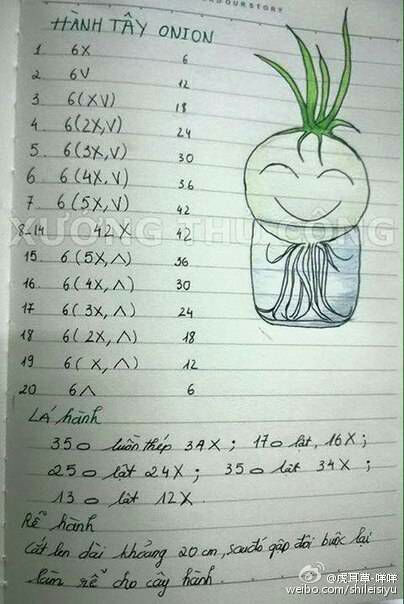 OUR STORY
HÀNH TÂY ONION
1 6X 6
2 6V 12
3 6(XV) 18
4. 6(2X,V) 24
5. 6(3X,V) 30
6 6(4X,V) 36
7 6(5X,V) 42
XƯỞNG THỦ CÔNG
8-14 42X 42
15. 6(5X,Λ) 36
16. 6(4X,Λ) 30
17 6(3X,Λ) 24
18 6(2X,Λ) 18
19 6(X,Λ) 12
20 6Λ 6
LÁ hành
35o luồn thép 34X; 17o lật, 16X;
25o lật 24X; 35o lật 34X;
13o lật 12X.
Rễ hành
Cắt len dài khoảng 20 cm, sau đó gập đôi buộc lại
làm rễ cho cây hành.
@虎耳草-咩咩
weibo.com/shileisiyu